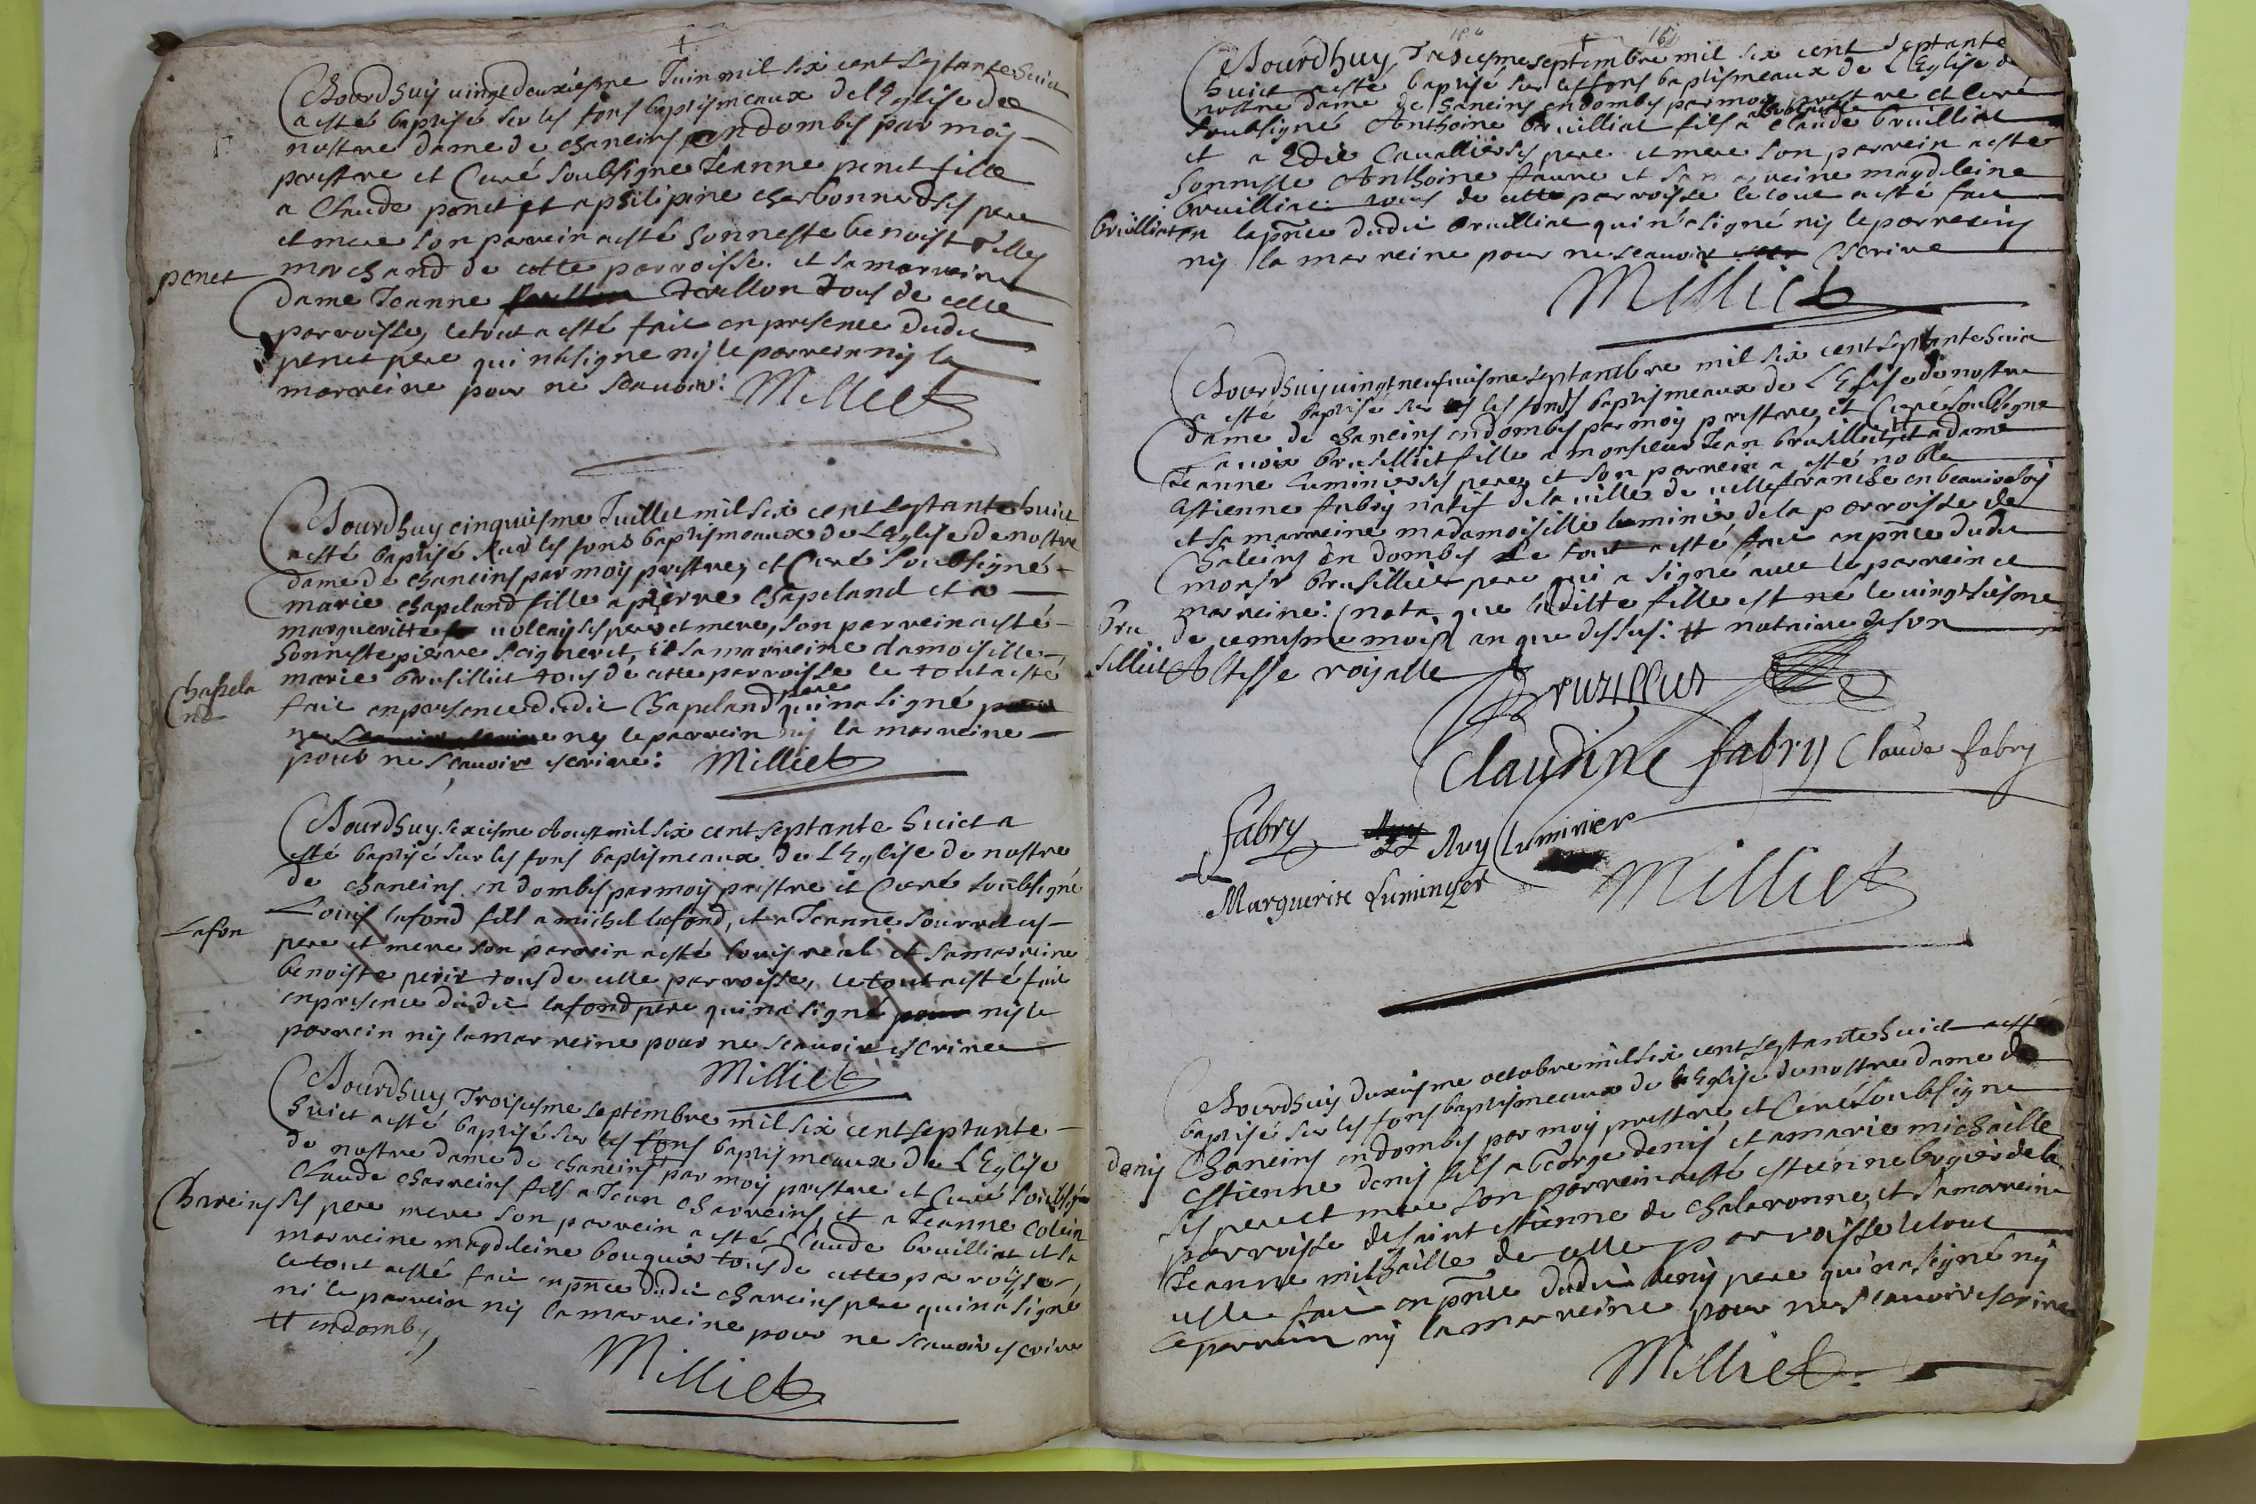 Aourdhuy vingt deuxiesme Juin mil six cent septante huict
a esté baptisé sur les fons baptismeaux de l'Eglise de
nostre dame de chaneins en dombes par moy
prestre et Curé soubsigné Jeanne penet fille
a Claude penet et a philipine charbonned ses pere
et mere son parrein a esté honneste benoist
marchand de cette parroisse. et sa marreine
penet
dame Jeanne tous de cette
parroisse, le tout a esté fait en presence dudit
penet pere qui n'a signé ny le parrein ny la
marreine pour ne scauoir. Milliet
Aourdhuy cinquiesme Juillet mil six cent septante huict
a esté baptisé sur les fons baptismeaux de l'Eglise de nostre
dame de chaneins par moy prestre, et Curé soubsigné
marie chapeland fille a pierre chapeland et a
margueritte uoleny ses pere et mere, son parrein a esté
honneste pierre seigneret, et sa marreine damoiselle
marie brusilliet tous de cette parroisse le tout a esté
Chapela
nd
fait en presence dudit Chapeland pere qui n'a signé
ny le parrein ny la marreine
pour ne scauoir escrire: Milliet
Aourdhuy sixiesme Aoust mil six cent septante huict a
esté baptisé sur les fons baptismeaux de l'Eglise de nostre
de chaneins en dombes par moy prestre et Curé soubsigné
Louis lafond fils a michel lafond, et a Jeanne
Lafon
pere et mere son parrein a esté louis et sa marreine
benoiste perit tous de cette parroisse, le tout a esté fait
en presence dudit lafond pere qui n'a signé ny le
parrein ny la marreine pour ne scauoir escrire
Milliet
Aourdhuy Troisiesme septembre mil six cent septante
huict a esté baptisé sur les fons baptismeaux de l'Eglise
de nostre dame de chaneins # par moy prestre et Curé soubsigné
Claude charreins fils a Jean charreins, et a Jeanne colein
Chareins
ses pere mere son parrein a esté Claude bruilliat et sa
marreine magdeleine bouquis tous de cette parroisse,
le tout a esté fait en pnce dudit chareins pere qui n'a signé
ni le parrein ny la marreine pour ne scauoir escrire
# en dombes,
Milliet
Aourdhuy septembre mil six cent septante
huict a esté baptisé sur les fons baptismeaux de l'Eglise de
nostre dame de chaneins en dombes par moy prestre et Curé
soubsigné Anthoine bruilliat fils a Claude bruilliat
et a Edie Cauallier ses pere et mere son parrein a esté
honneste Anthoine faure et sa marreine magdeleine
bruilliat tous de cette parroisse le tout a esté fait
bruilliat
en la pnce dudit bruilliat qui n'a signé ny le parrein
ny la marreine pour ne scauoir escrire
Milliet
Aourdhuy vingt neufuiesme septembre mil six cent septante huict
a esté baptisé sur les fons baptismeaux de l'Eglise de nostre
dame de chaneins en dombes par moy prestre, et Curé soubsigné
brusilliet fille a monsieur Jean brusilliet, # et a dame
Jeanne Luminier ses pere, et son parrein a esté noble
estienne fabry natif de la uille de uillefranche en beauiolois
et sa marreine madamoiselle luminier de la parroisse de
Chaleins en dombes Le tout a esté fait en pnce dudit
monsr brusilliet pere qui a signé auec le parrein et
marreine: (nota que ladilte fille est né le uingtsiesme
Bru
silliet
de ce mesme mois an que dessus: # notaire de son
Altesse royalle
Bruzillet
Claudine fabry Claude fabry
fabry Auy Luminier
Marguerite Luminyer Milliet
Aourdhuy dixiesme octobre mil six cent septante huict a esté
baptisé sur les fons baptismeaux de l'Eglise de nostre dame de
denis
Chaneins en dombes par moy prestre, et Curé soubsigné
estienne denis fils a George denis, et a marie michaille
ses pere et mere son parrein a esté estienne de la
parroisse de saint estienne de chalaronne, et sa marreine
Jeanne michaille de cette parroisse le tout
esté fait en pnce dudit denis pere qui n'a signé ny
le parrein ny la marreine pour ne scauoir escrire
Milliet